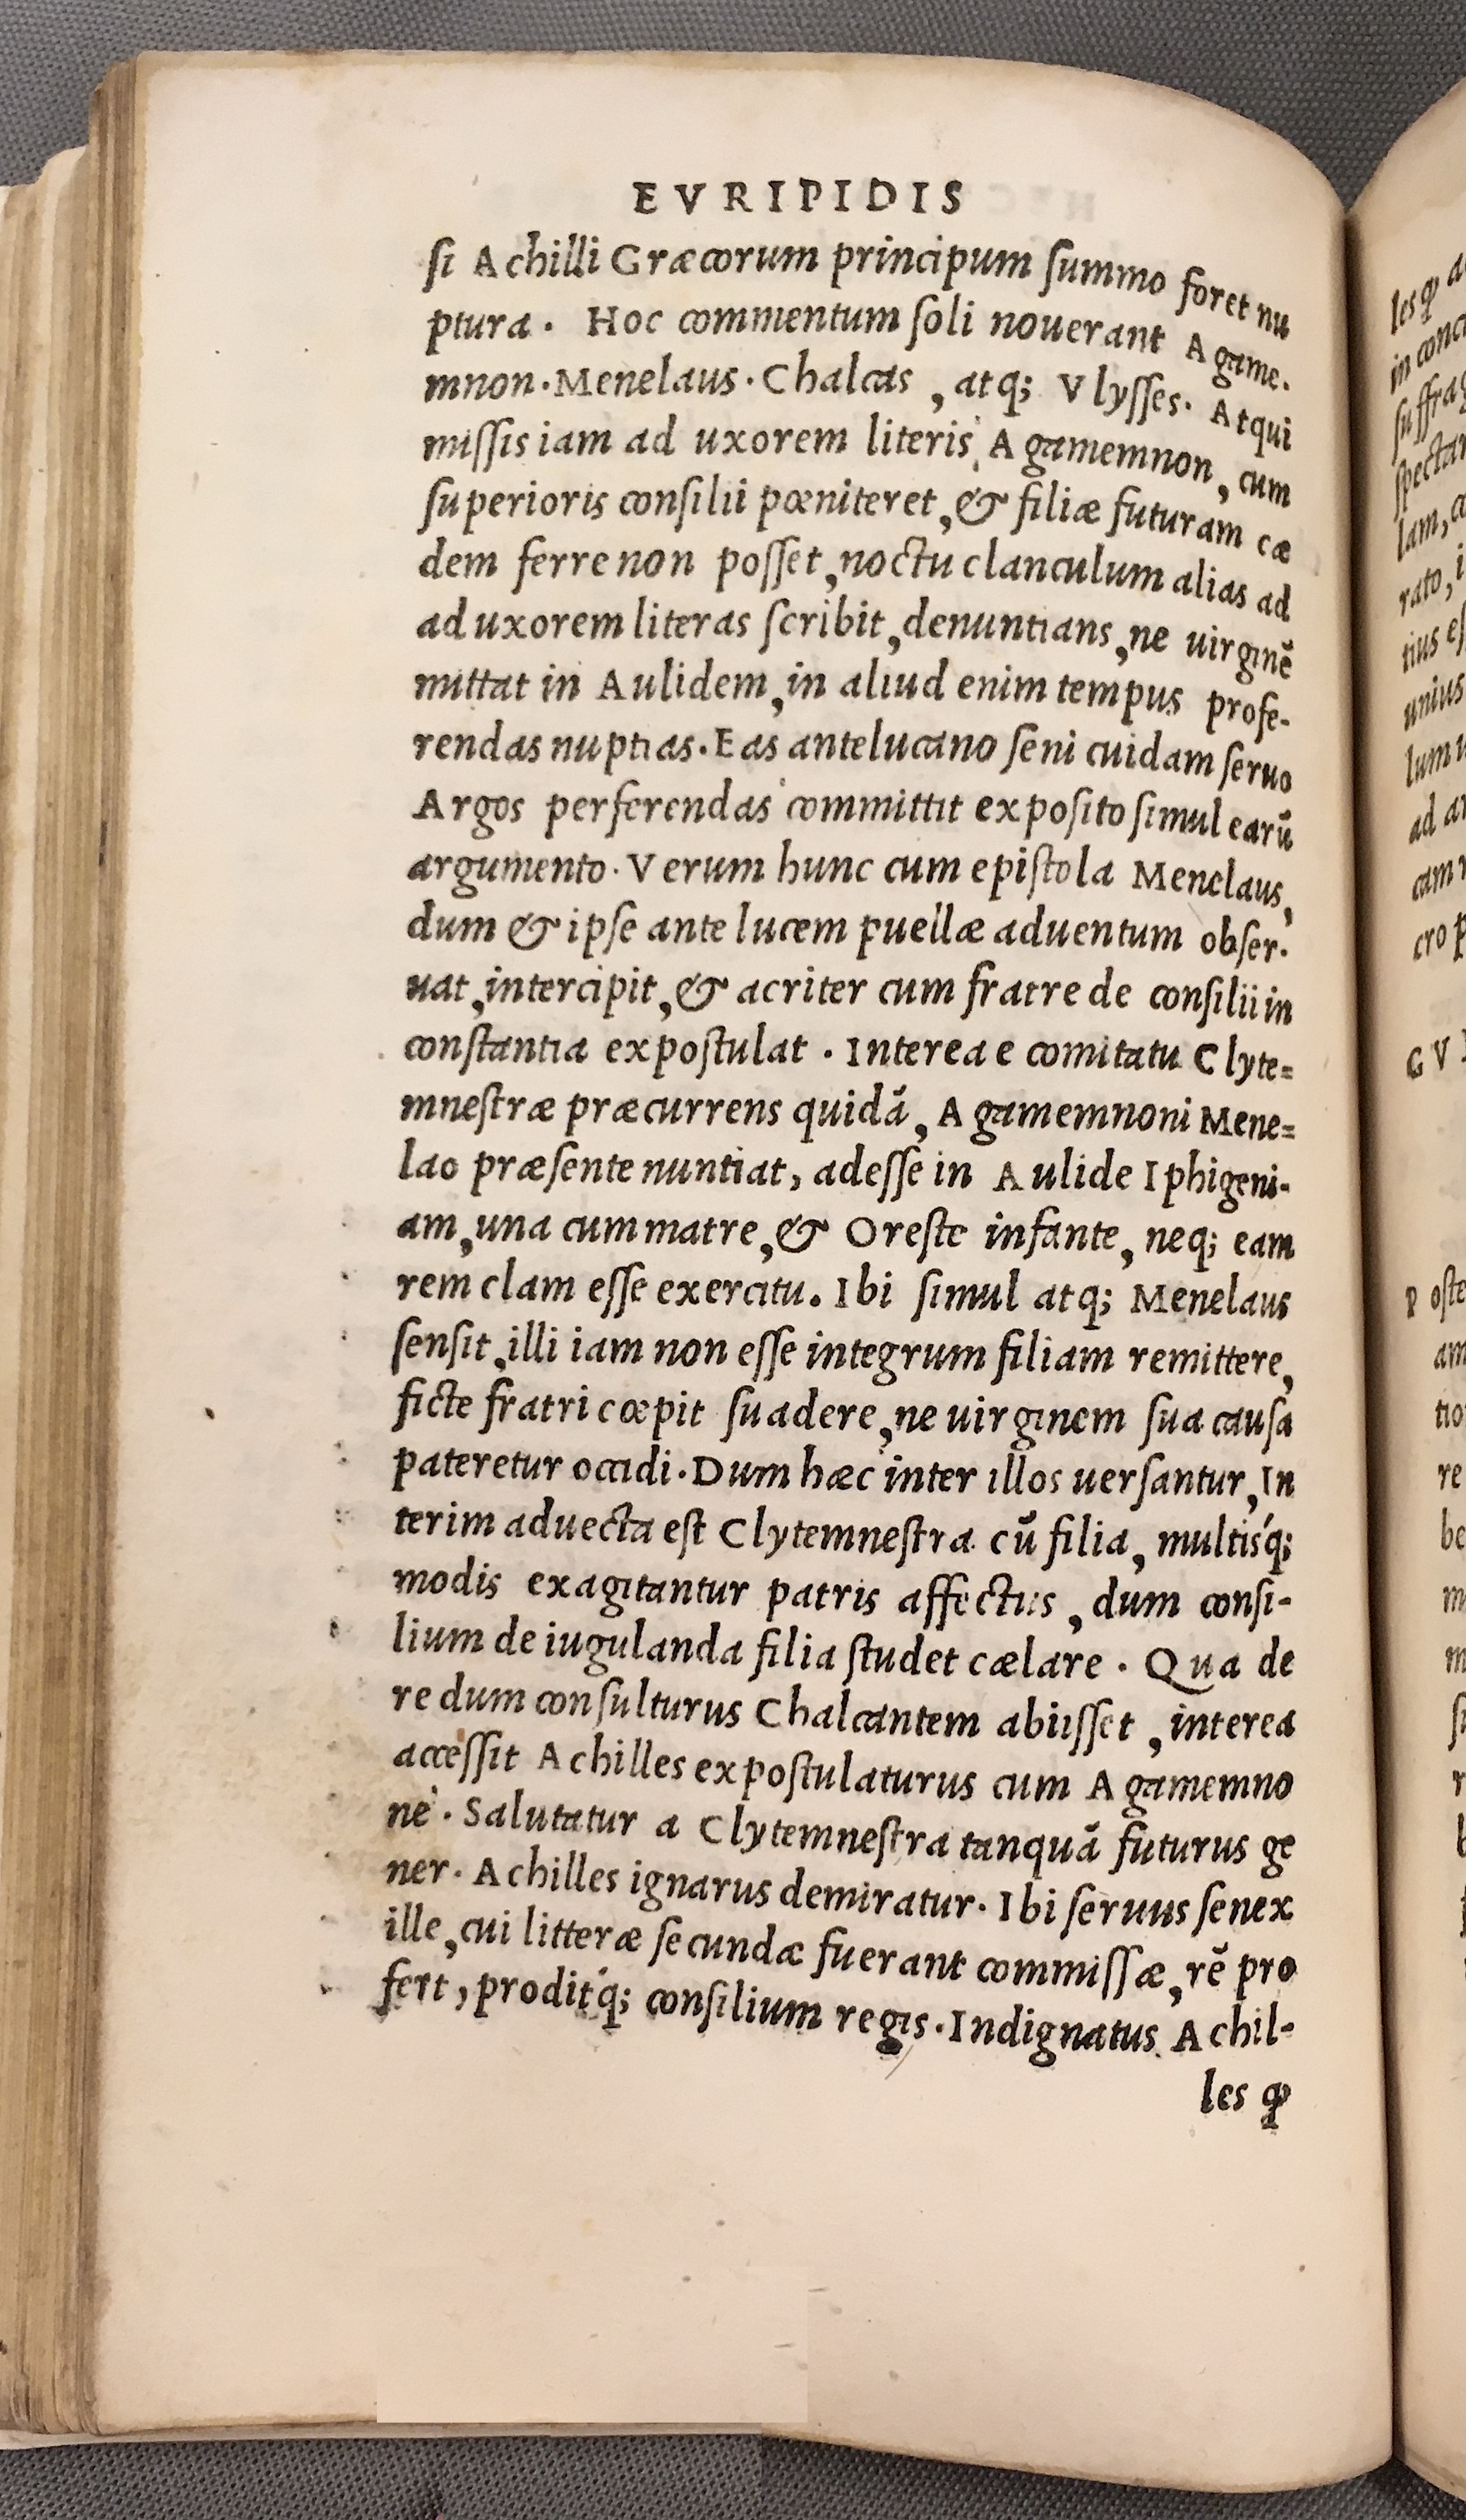 EVRIPIDIS
ſi Achilli Græcorum principum ſummo foret nu
ptura. Hoc commentum ſoli nouerant Agame-
mnon. Menelaus. Chalcas, atq; Vlyſſes. Atqui
miſſis iam ad uxorem literis, Agamemnon, cum
ſuperioris conſilii pœniteret, & filiæ futuram cæ
dem ferre non poſſet, noctu clanculum alias ad
ad uxorem literas ſcribit, denuntians, ne uirginẽ
mittat in Aulidem, in aliud enim tempus profe-
rendas nuptias. Eas antelucano ſeni cuidam ſeruo
Argos perferendas committit expoſito ſimul earũ
argumento. Verum hunc cum epiſtola Menelaus,
dum & ipſe ante lucem puellæ aduentum obſer-
uat, intercipit, & acriter cum fratre de conſilii in
conſtantia expoſtulat. Interea e comitatu Clyte=
mneſtræ præcurrens quidã, Agamemnoni Mene=
lao præſente nuntiat, adeſſe in Aulide Iphigeni-
am, una cum matre, & Oreſte infante, neq; eam
rem clam eſſe exercitu. Ibi ſimul atq; Menelaus
ſenſit, illi iam non eſſe integrum filiam remittere,
ficte fratri cœpit ſuadere, ne uirginem ſua cauſa
pateretur occidi. Dum hæc inter illos uerſantur, In
terim aduecta eſt Clytemneſtra cũ filia, multiſq́;
modis exagitantur patris affectus, dum conſi-
lium de iugulanda filia ſtudet cælare. Qua de
re dum conſulturus Chalcantem abiiſſet, interea
acceſſit Achilles expoſtulaturus cum Agamemno
ne. Salutatur a Clytemneſtra tanquã futurus ge
ner. Achilles ignarus demiratur. Ibi ſeruus ſenex
ille, cui litteræ ſecundæ fuerant commiſſæ, rẽ pro
fert, proditq́; conſilium regis. Indignatus Achil-
les ꝙ